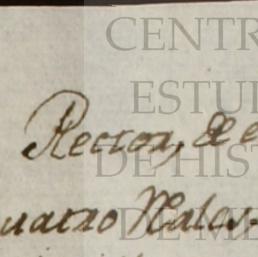 CENTR
ESTU
DE HIST
DE ME
Rector, de
uatro Reales